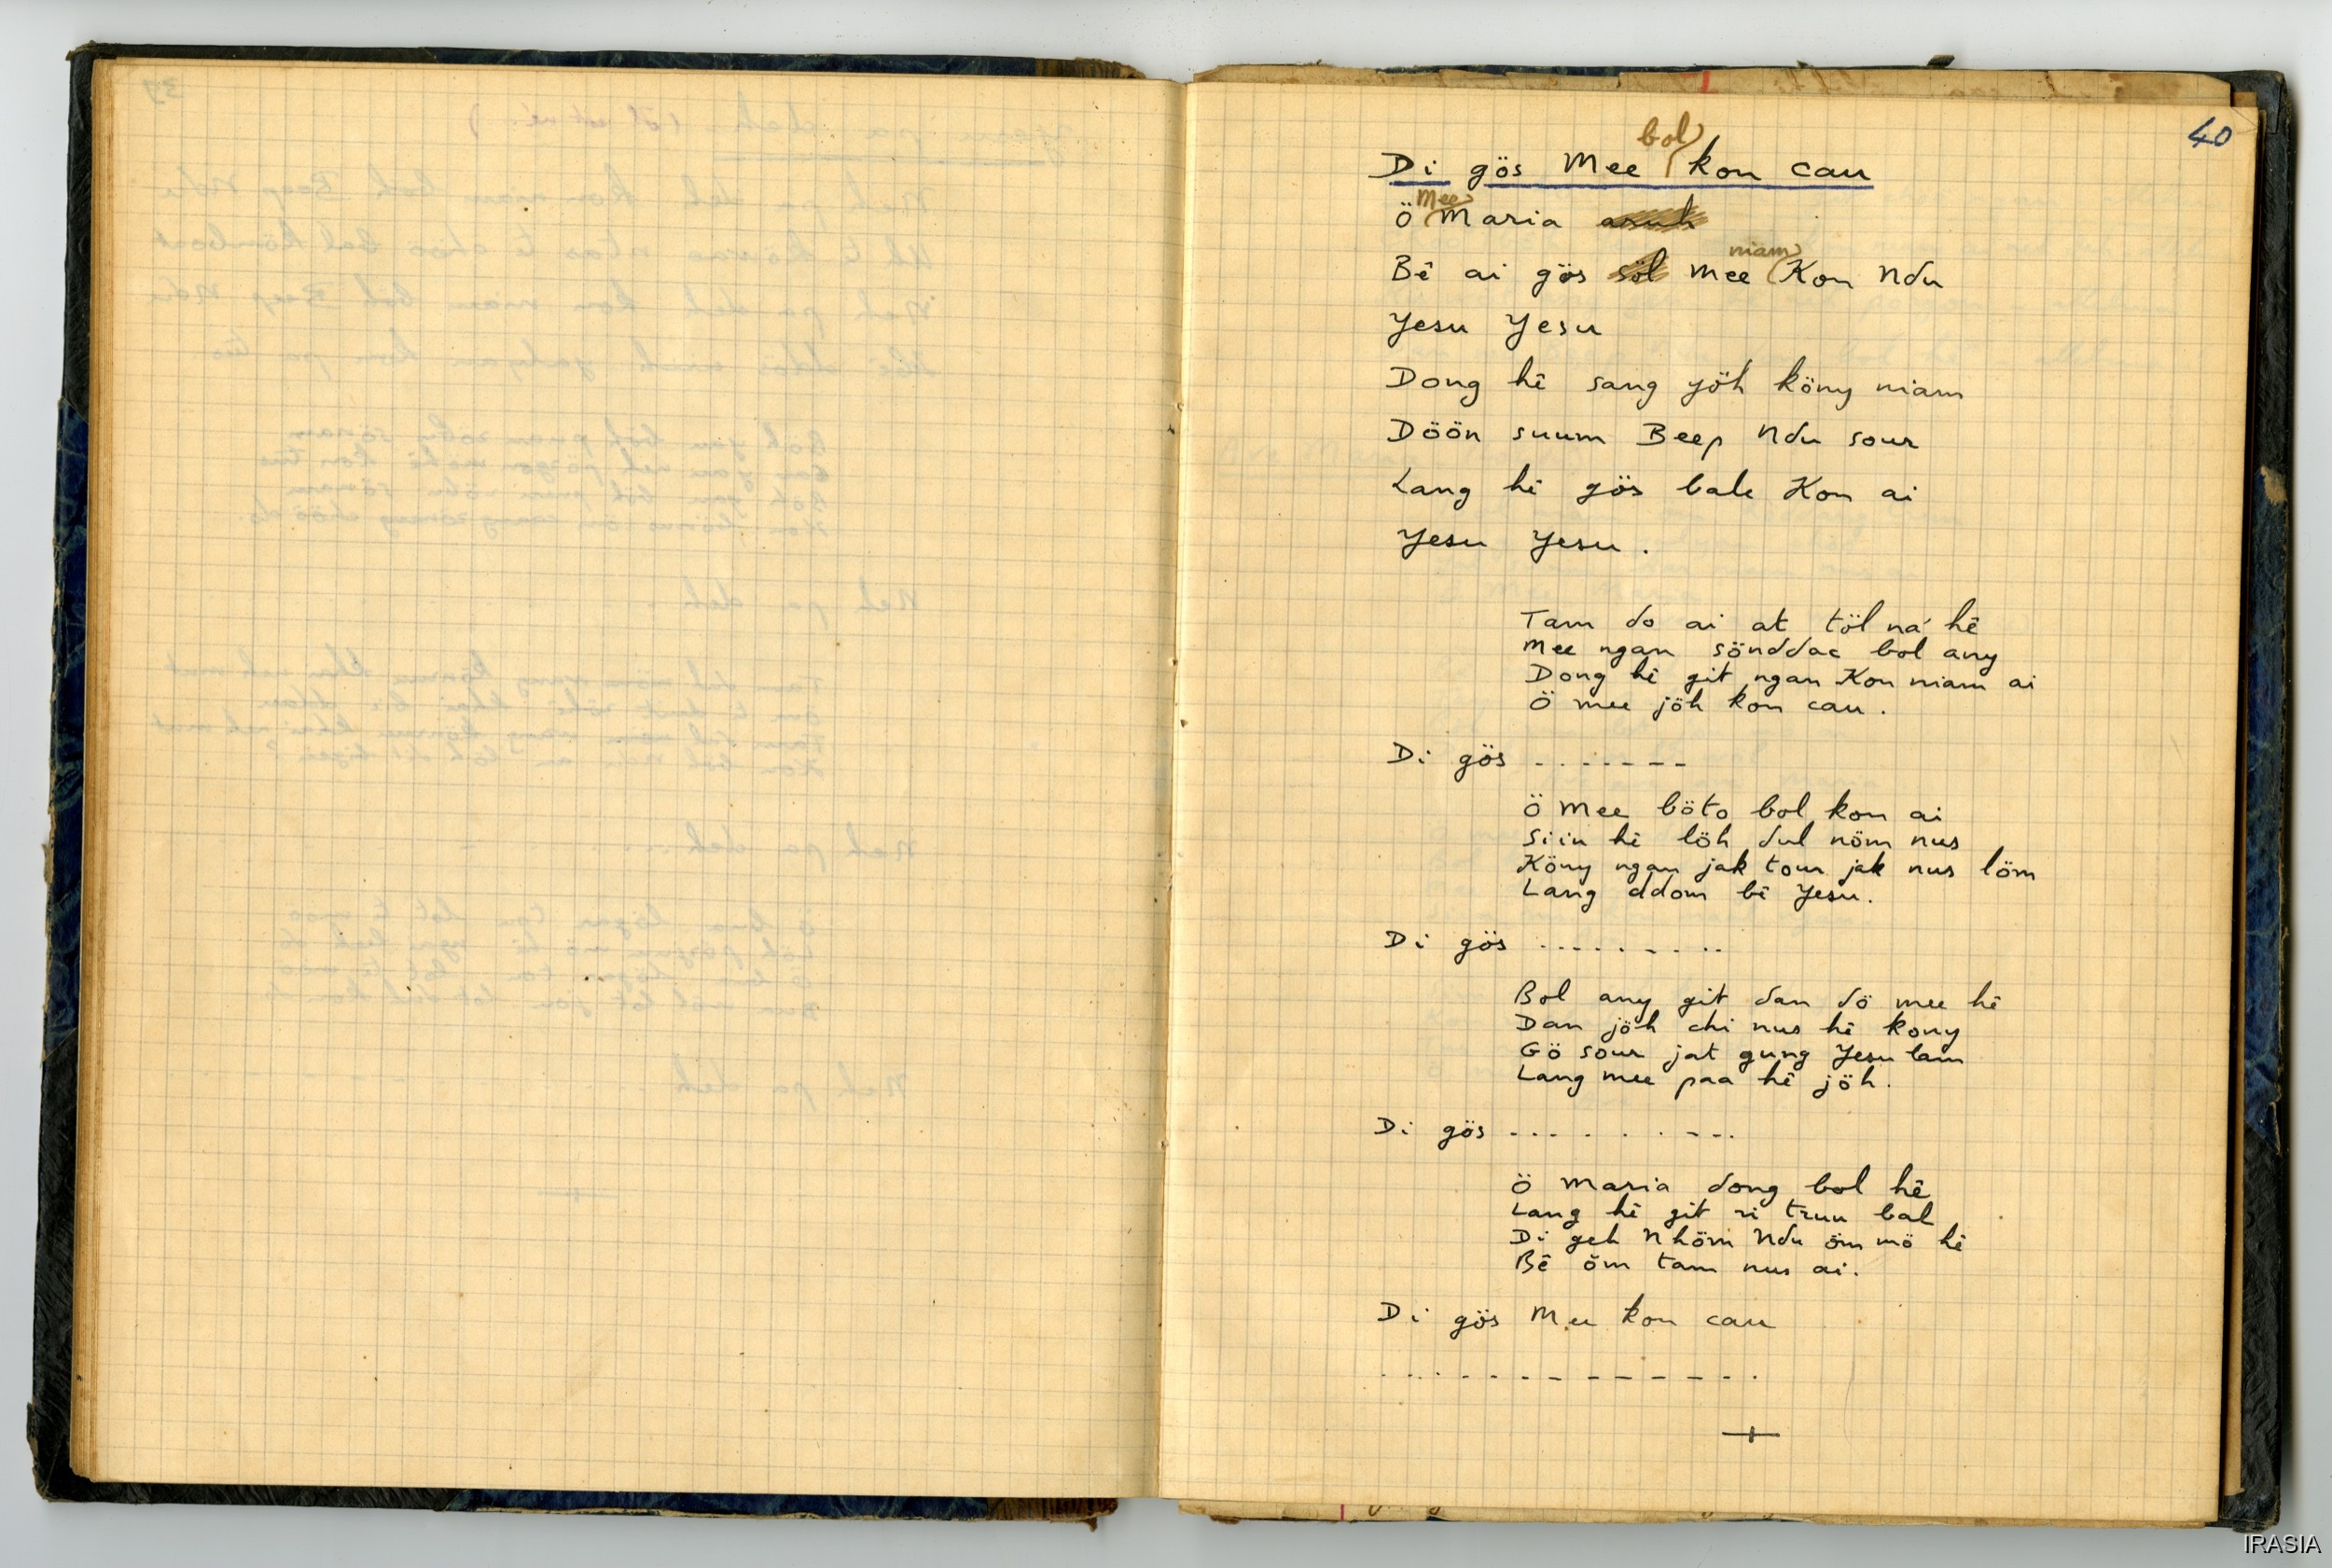 40
Di gös Mee bol kon cau
Ö Mee Maria
Bê ai gös söl Mee niam Kon Ndu
Yesu Yesu
Dong hê sang jöh köny niam
Döön suum Beep Ndu sour
Lang hê gös bale Kon ai
Yesu Yesu.
Tam do ai at töl na hê
Mee ngan sönddac bol any
Dong hê git ngan Kon niam ai
Ö mee jöh kon cau.
Di gös .......
Ö Mee böto bol kon ai
Siin hê löh dul nöm nus
Köny ngan jak tour jak nus löm
Lang ddom bê Yesu.
Di gös .........
Bol any git dan dö mee hê
Dan jöh chi nus hê kony
Gö sour jat gung Yesu lam
Lang mee paa hê jöh.
Di gös .........
Ö Maria dong bol hê
Lang hê git ri truu bal
Di geh Nhöm Ndu öm mö hê
Bê öm tam nus ai.
Di gös Mee kon cau
..............
IRASIA